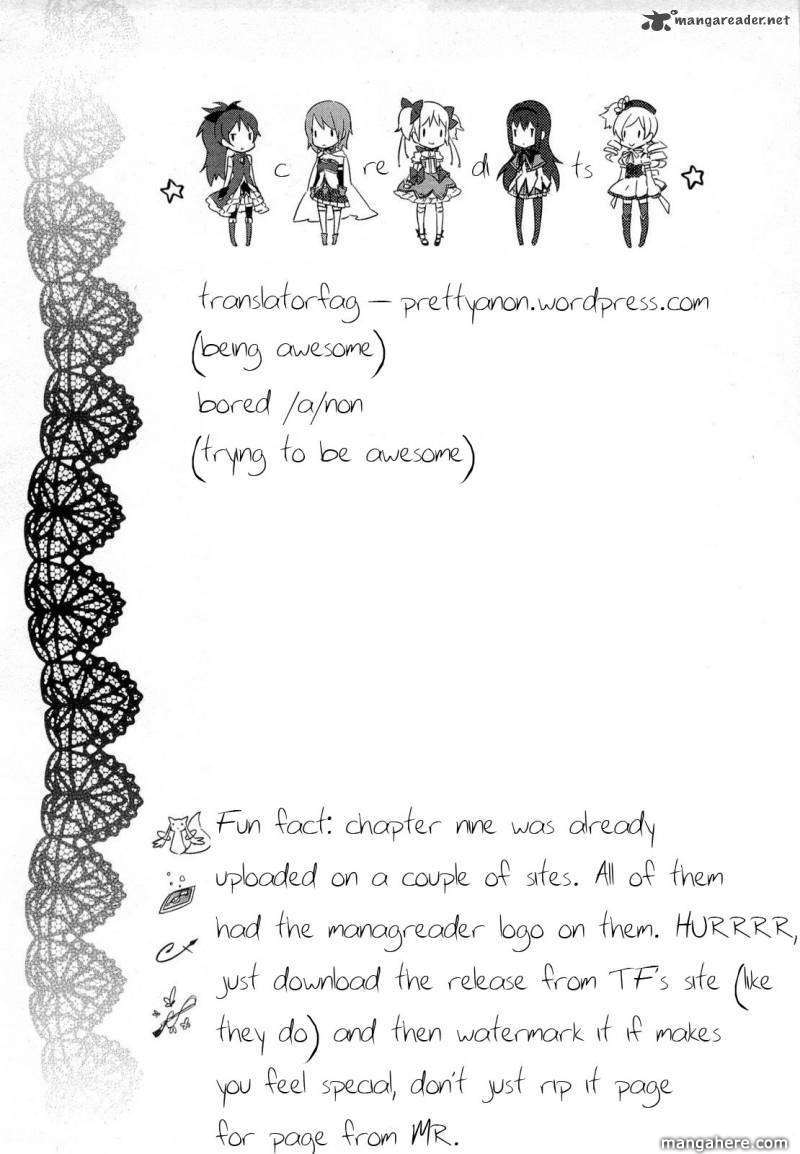 mangareader.net
c re di ts
translatorfag — prettyanon.wordpress.com
(being awesome)
bored /a/non
(trying to be awesome)
Fun fact: chapter nine was already
uploaded on a couple of sites. All of them
had the managreader logo on them. HURRRR,
just download the release from TF's site (like
they do) and then watermark it if makes
you feel special, don't just rip it page
for page from MR.
mangahere.com